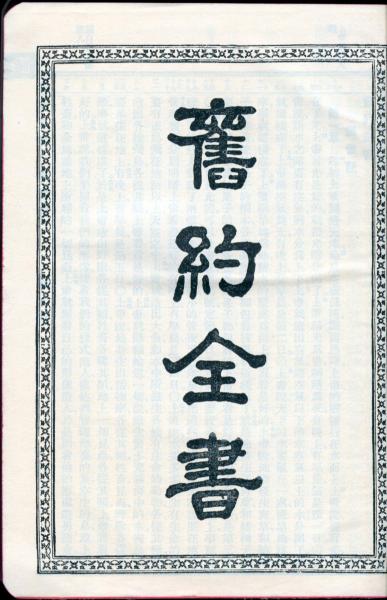 舊約全書